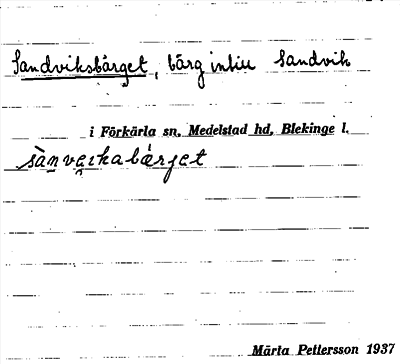 Sandviksbärget, bärg intill Sandvik
i Förkärla sn, Medelstad hd, Blekinge l.
sànveɪkabǽrjet
Märta Pettersson 1937